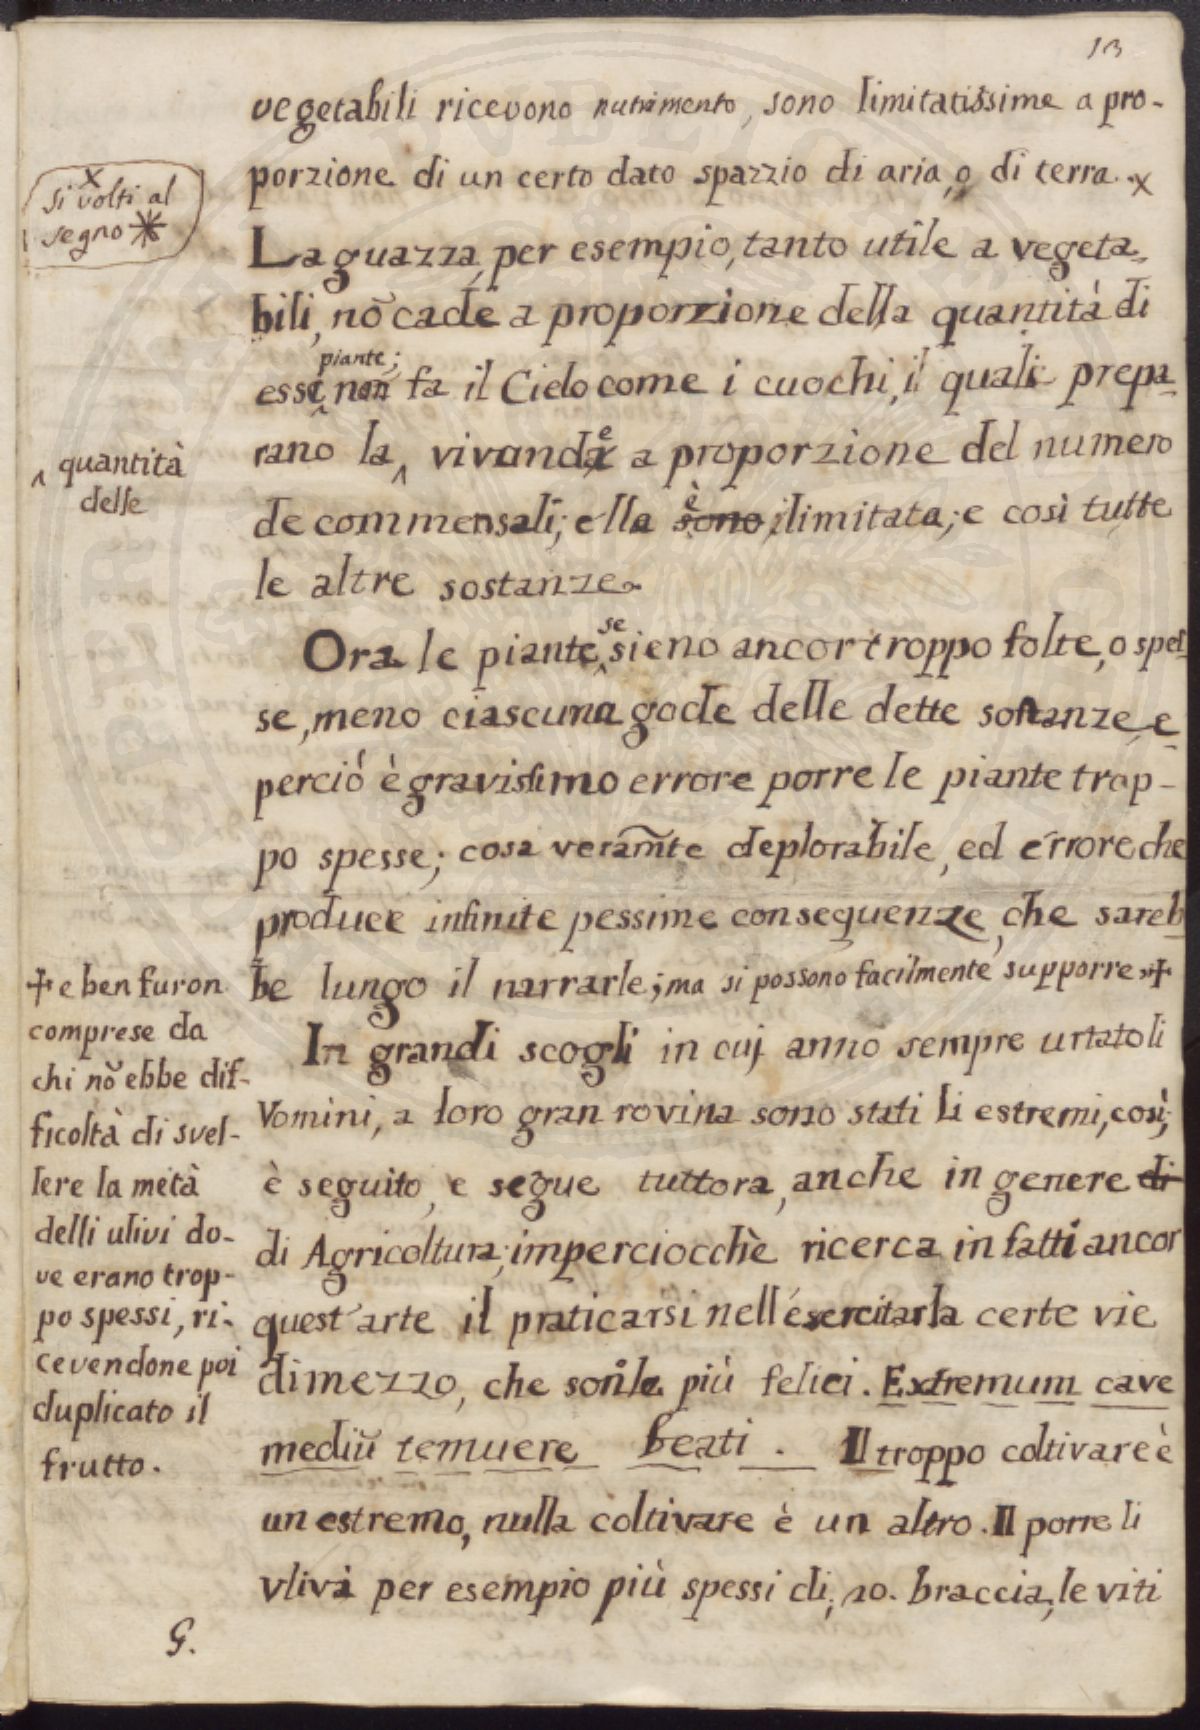 13
vegetabili ricevono nutrimento, sono limitatissime a pro-
porzione di un certo dato spazzio di aria, o di terra. x
x
si volti al
segno *
La guazza, per esempio, tanto utile a vegeta„
bili, nō cade a proporzione della quantità di
piante;
esse non fa il Cielo come i cuochi, il quali prepa„
rano la ^ vivande a proporzione del numero
^ quantità
delle
è
de commensali; ella sono ilimitata; e così tutte
le altre sostanze.
se
Ora le piante ^ sieno ancor troppo folte, o spes„
se, meno ciascuna gode delle dette sostanze, e
perciò è gravissimo errore porre le piante trop-
po spesse; cosa veram̃te deplorabile, ed errore che
produce infinite pessime conseguenze, che sareb
be lungo il narrarle; ma si possono facilmente supporre„ +
+ e ben furon
comprese da
chi nō ebbe dif-
ficoltà di svel-
lere la metà
delli ulivi do-
ve erano trop-
po spessi, ri-
cevendone poi
duplicato il
frutto.
In grandi scogli in cuj anno sempre urtato li
Vomini, a loro gran rovina sono stati li estremi, così,
è seguito, e segue tuttora, anche in genere di
di Agricoltura; imperciocchè ricerca in fatti ancor
quest'arte il praticarsi nell'esercitarla certe vie
di mezzo, che son le più felici. Extremum cave
mediū temuere beati. Il troppo coltivare è
un estremo, nulla coltivare è un altro. Il porre li
vlivi per esempio più spessi di, 20. braccia, le viti
G.